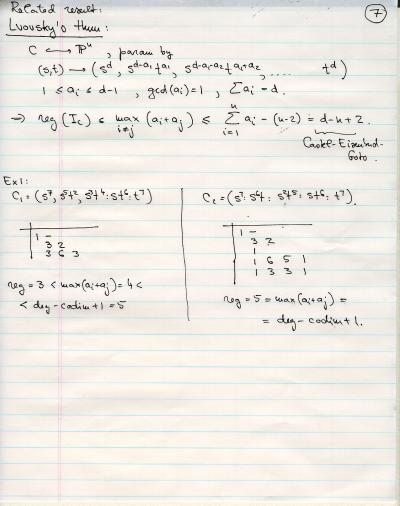 Related result:
7
Lvovsky's thm:
C ↪ ℙⁿ, param by
(s,t) → (s^d, s^{d-a₁}t^{a₁}, s^{d-a₁-a₂}t^{a₁+a₂}, .... t^d)
1 ≤ aᵢ ≤ d-1, gcd(aᵢ)=1, Σaᵢ = d.
⇒ reg(I_C) ≤ max_{i≠j}(aᵢ+aⱼ) ≤ Σ_{i=1}^{n} aᵢ - (n-2) = d-n+2.
Castel-Eisenbud-
Goto.
Ex1:
C₁=(s⁷, s⁵t², s³t⁴: st⁶: t⁷)
1 –
3 2
3 6 3
reg = 3 < max(aᵢ+aⱼ)=4 <
< deg-codim+1=5
C₂=(s⁷: s⁶t: s²t⁵: st⁶: t⁷).
1 –
3 2
1
1 6 5 1
1 3 3 1
reg = 5 = max(aᵢ+aⱼ) =
= deg-codim+1.